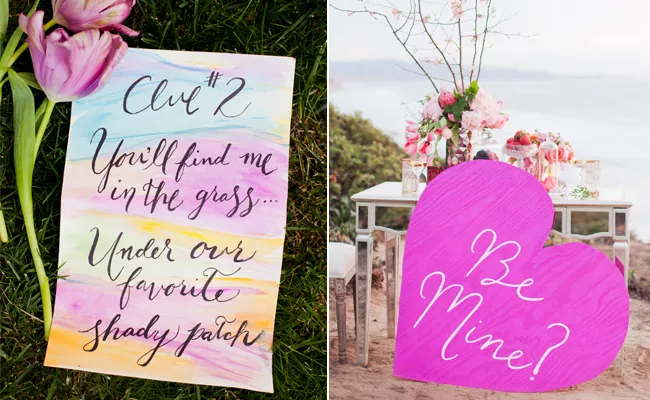 Clue #2
You'll find me
in the grass...
Under our
favorite
shady patch
Be
Mine?